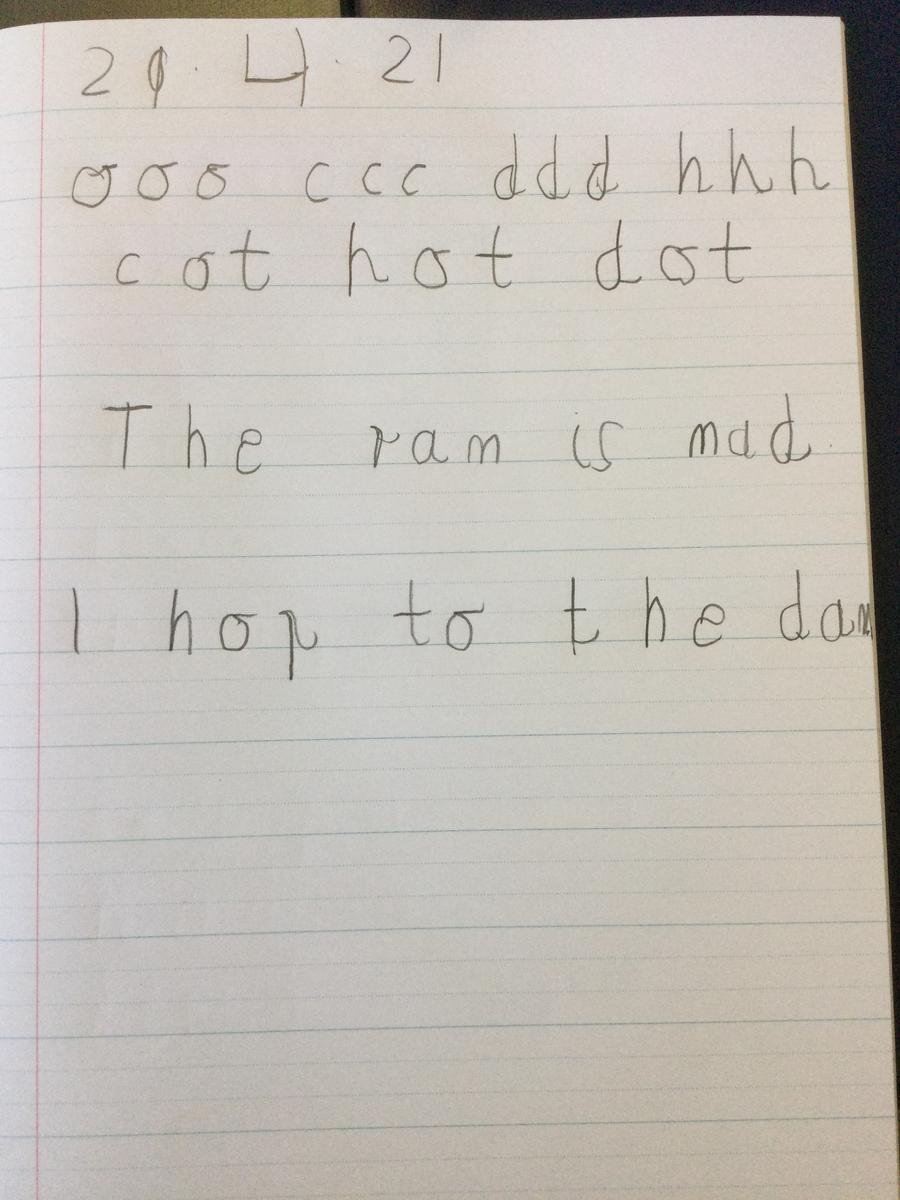 29.4.21
ooo ccc ddd hhh
cot hot dot
The ram is mad.
I hop to the dam